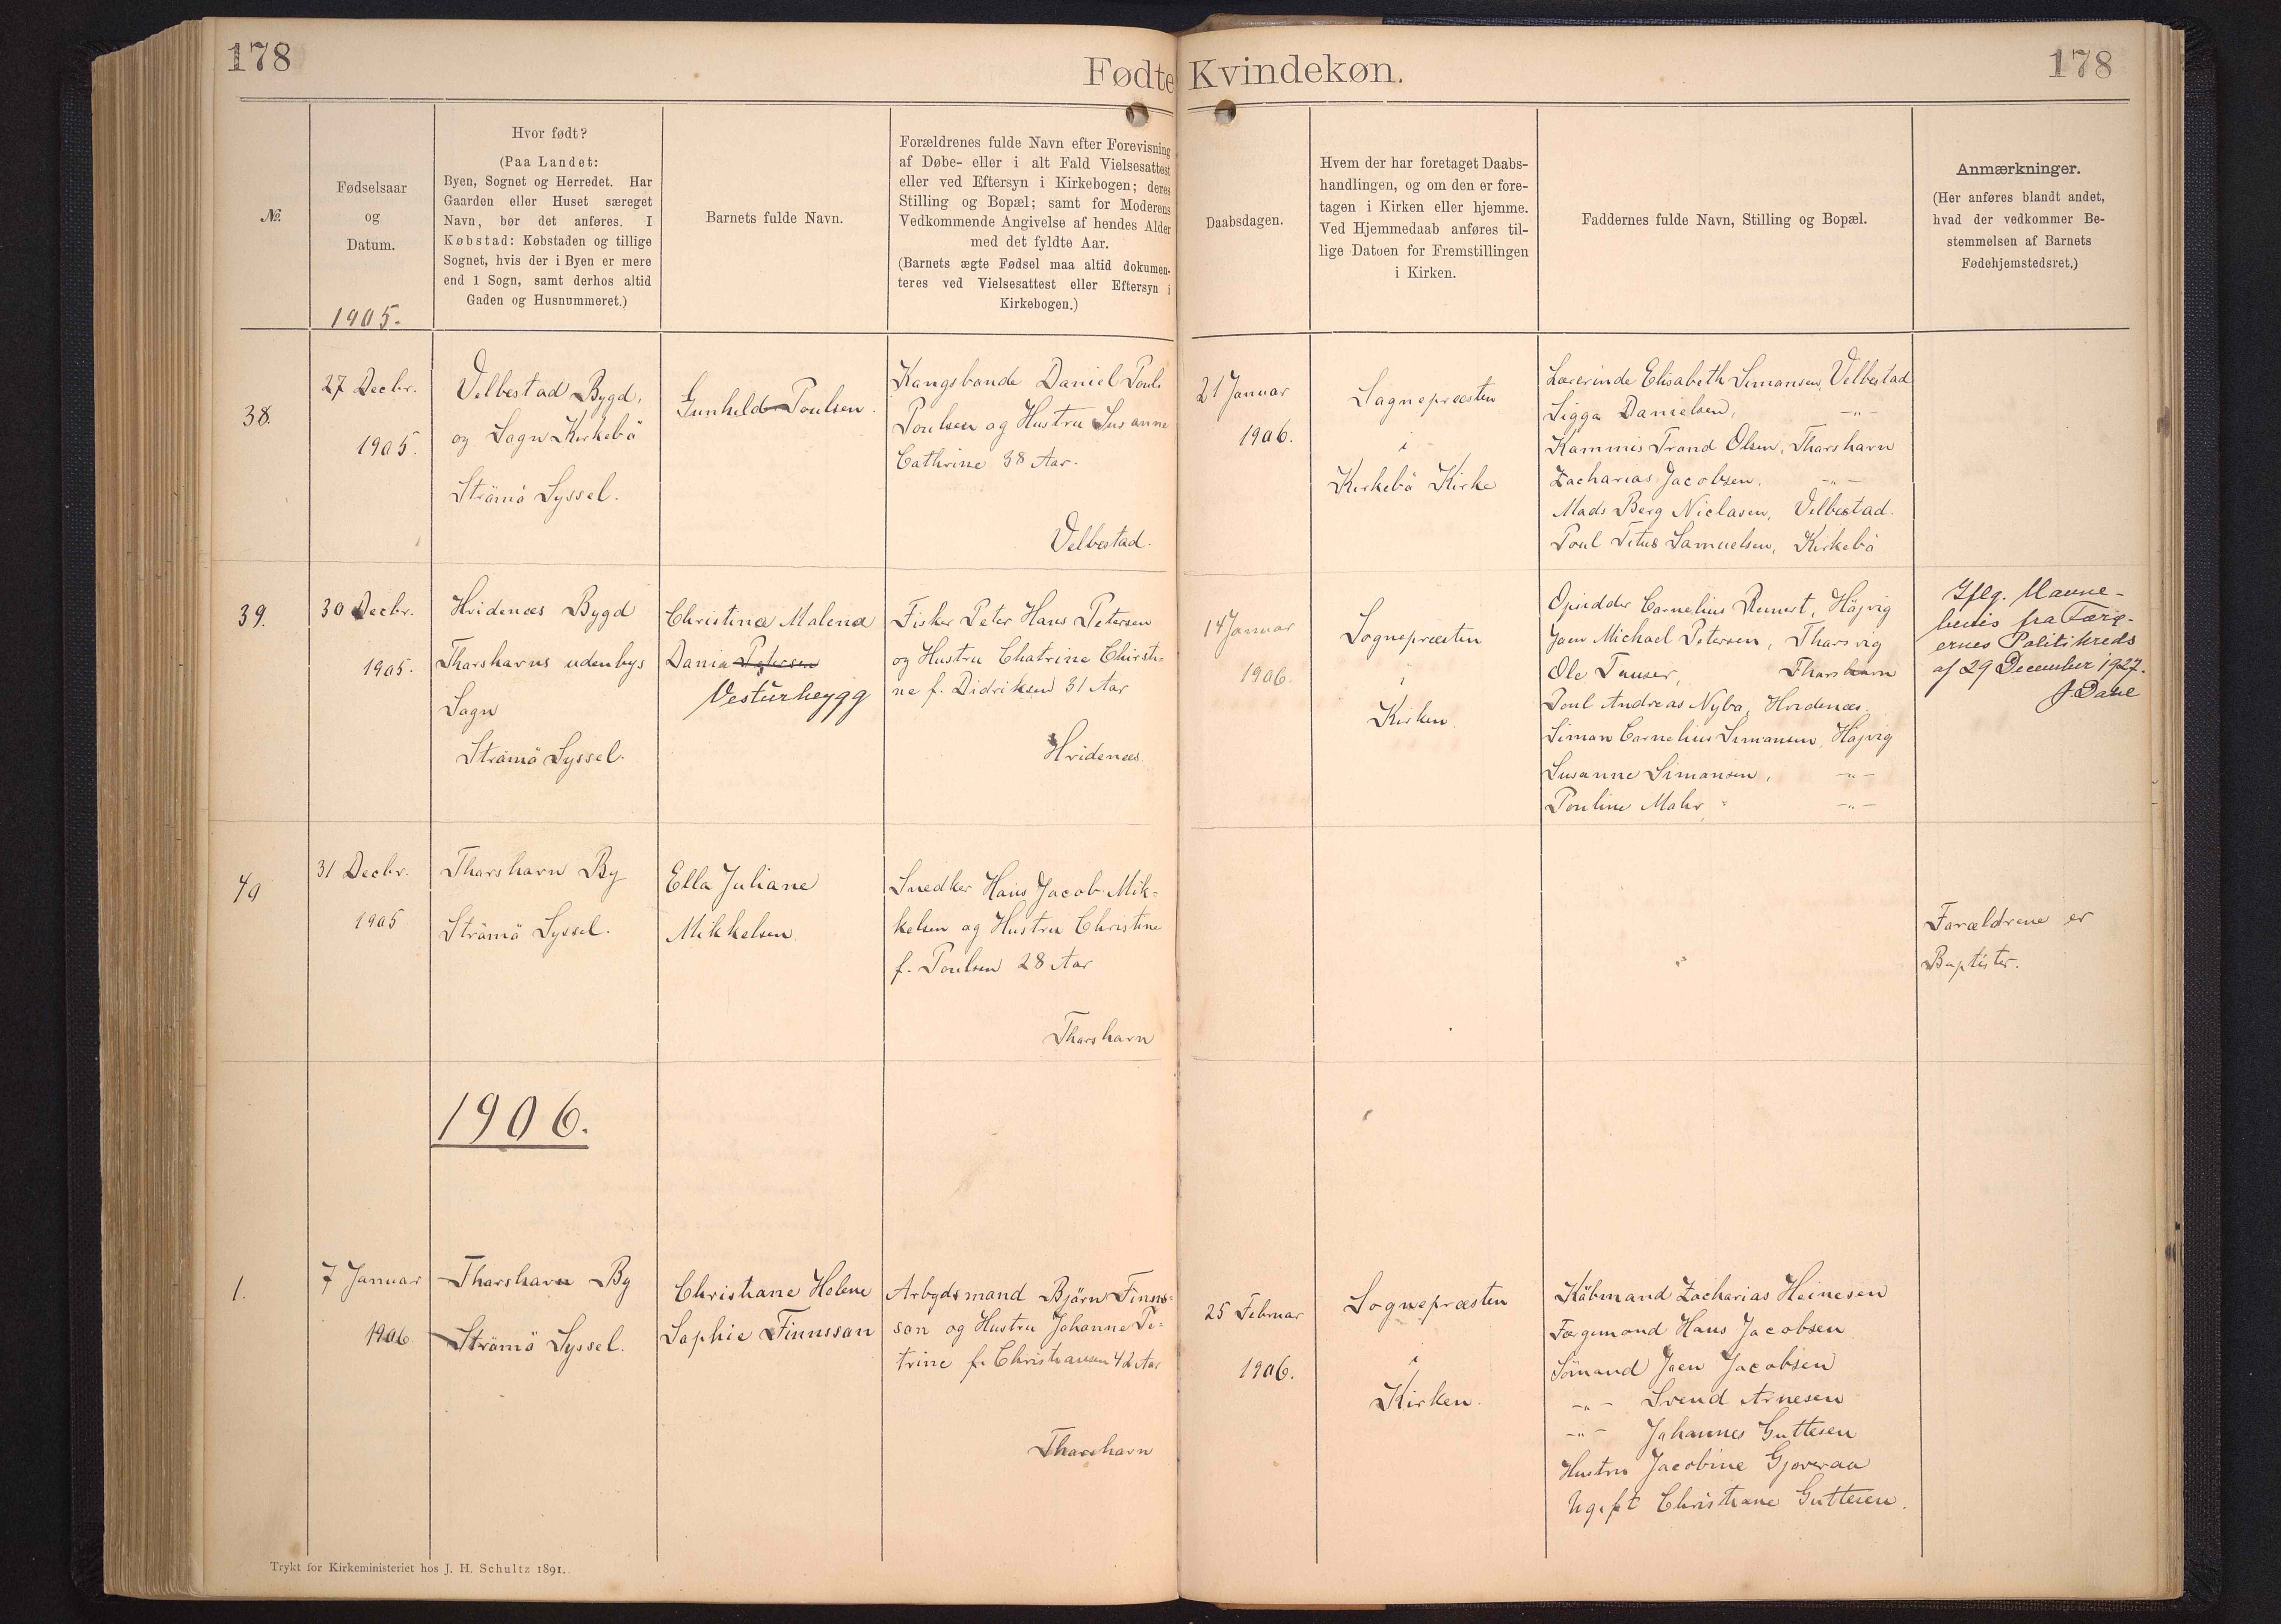 178
Fødte Kvindekøn.
178
№.
Fødselsaar
og
Datum.
1905.
Hvor født?
(Paa Landet:
Byen, Sognet og Herredet. Har
Gaarden eller Huset særeget
Navn, bør det anføres. I
Købstad: Købstaden og tillige
Sognet, hvis der i Byen er mere
end 1 Sogn, samt derhos altid
Gaden og Husnummeret.)
Barnets fulde Navn.
Forældrenes fulde Navn efter Forevisning
af Døbe- eller i alt Fald Vielsesattest
eller ved Eftersyn i Kirkebogen; deres
Stilling og Bopæl; samt for Moderens
Vedkommende Angivelse af hendes Alder
med det fyldte Aar.
(Barnets ægte Fødsel maa altid dokumen-
teres ved Vielsesattest eller Eftersyn i
Kirkebogen.)
Daabsdagen.
Hvem der har foretaget Daabs-
handlingen, og om den er fore-
tagen i Kirken eller hjemme.
Ved Hjemmedaab anføres til-
lige Datoen for Fremstillingen
i Kirken.
Faddernes fulde Navn, Stilling og Bopæl.
Anmærkninger.
(Her anføres blandt andet,
hvad der vedkommer Be-
stemmelsen af Barnets
Fødehjemstedsret.)
38.
27 Decbr.
1905.
Velbestad Bygd,
og Sogn Kirkebö
Strömö Syssel.
Gunhild Poulsen.
Kongsbonde Daniel Pouli
Poulsen og Hustru Susanne
Cathrine 38 Aar.
Velbestad.
21 Januar
1906.
Sognepræsten
i
Kirkebö Kirke
Lærerinde Elisabeth Simonsen, Velbestad
Sigga Danielsen, -"-
Kammis Trond Olsen, Thorshavn
Zacharias Jacobsen, -"-
Mads Berg Niclasen, Velbestad.
Poul Titus Samuelsen, Kirkebö
39.
30 Decbr.
1905.
Hvidenæs Bygd
Thorshavns udenbys
Sogn
Strömö Syssel.
Christina Malena
Dania Petersen
Vesturheygg
Fisker Peter Hans Petersen
og Hustru Chatrine Christi-
ne f. Didriksen 31 Aar
Hvidenæs
14 Januar
1906.
Sognepræsten
i
Kirken.
Opsidder Cornelius Reinert, Höjvig
Joen Michael Petersen, Thorsvig
Ole Thorshavn
Poul Andreas Nybo, Hvidenæs.
Simon Cornelius Simonsen, Höjvig
Susanne Simonsen, -"-
Pouline Mohr, -"-
Iflg. Navne-
bevis fra Færø-
ernes Politikreds
af 29 December 1927.
40
31 Decbr.
1905
Thorshavn By
Strömö Syssel.
Ella Juliane
Mikkelsen
Snedker Hans Jacob Mik-
kelsen og Hustru Christine
f. Poulsen 28 Aar
Thorshavn
Forældrene er
Baptister.
1906.
1.
7 Januar
1906
Thorshavn By
Strömö Syssel.
Christiane Helene
Sophie Finnsson
Arbejdsmand Björn Finns-
son og Hustru Johanne Pe-
trine f. Christiansen 42 Aar
Thorshavn
25 Februar
1906.
Sognepræsten
i
Kirken.
Köbmand Zacharias Heinesen
Hans Jacobsen
Sömand Joen Jacobsen
-"- Svend Arnesen
-"- Johannes Guttesen
Hustru Jacobine Gjoveraa
Ugift Christiane Guttesen.
Trykt for Kirkeministeriet hos J. H. Schultz 1891.